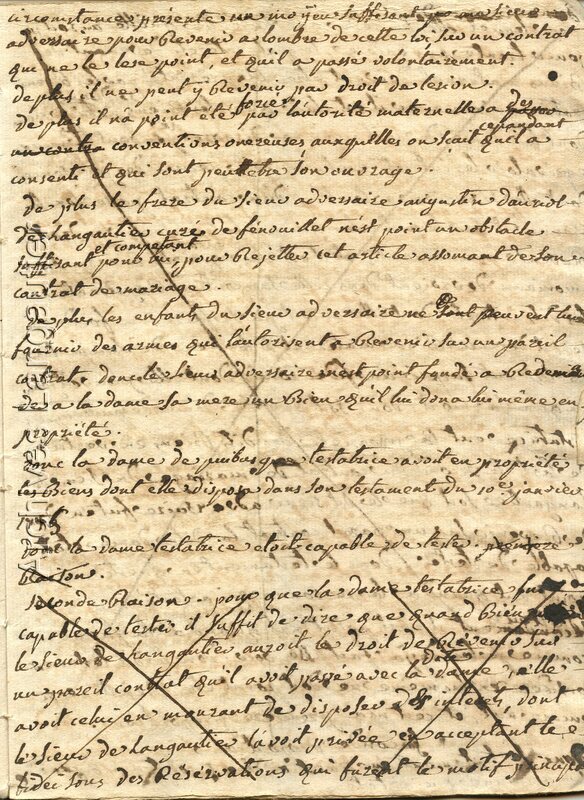 circonstance presente un moyen suffisant pour monsieur
adversaire pour Revenir a lombre de cette loi sur un contrat
qui ne le lese point, et qu'il a passé volontairement.
de plus il ne peut y Revenir par droit de lesion.
de plus il n'a point été forcé par l'autorité maternelle a des
cepandant
un contra conventions onereuses auxquelles on scait qu'il a
consenti et qui sont peut etre son ouvrage.
de plus le frere du sieur adversaire augustin dauriol
de hangautier curé de fenouillet n'est point un obstacle
suffisant et competant pour lui, pour Rejetter cet article assomant de son
contrat de mariage.
de plus, les enfants du sieur adversaire ne peuvent lui
fournir des armes qui l'autorisent a Revenir sur un pareil
contrat. donc le sieur adversaire n'est point fondé a Redeman
der a la dame sa mere un Bien qu'il lui dona lui même en
propriété.
donc la dame de puibusque testatrice avoit en propriété
les Biens dont elle disposa dans son testament du 10e janvier
donc la dame testatrice etoit capable de tester. premiere
Raison.
seconde Raison. pour que la dame testatrice fut
capable de tester il suffit de dire que quand Bien
le sieur de hangautier auroit le droit de Revenir sur
un pareil contrat qu'il avoit passé avec la dame, elle
avoit celui en mourant de disposer des interets, dont
le sieur de hangautier l'avoit privée en acceptant le
fidei sous des Réservations qui furent le motif principal
Archives-Europe